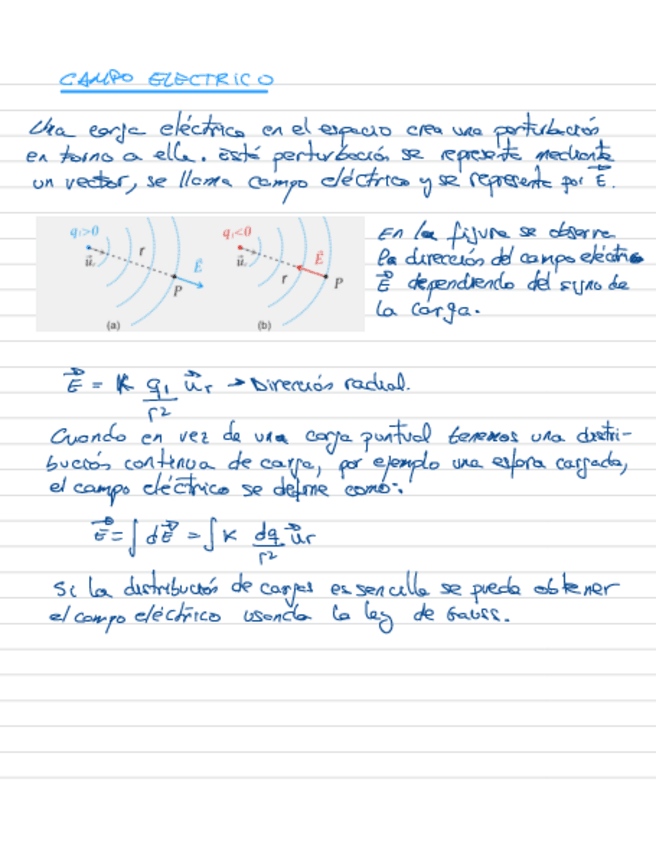 CAMPO ELECTRICO
Una carga eléctrica en el espacio crea una perturbación
en torno a ella. Está perturbación se represente mediante
un vector, se llama campo eléctrico y se represente por E⃗.
q₁>0
u⃗r
r
E⃗
P
(a)
q₁<0
u⃗r
r
E⃗
P
(b)
En la figura se observa
la dirección del campo eléctrico
E⃗ dependiendo del signo de
la carga.
E⃗ = K q₁/r² u⃗r → Dirección radial.
Cuando en vez de una carga puntual tenemos una distri-
bución continua de carga, por ejemplo una esfera cargada,
el campo eléctrico se define como:
E⃗ = ∫ dE⃗ = ∫ K dq/r² u⃗r
Si la distribución de cargas es sencilla se puede obtener
el campo eléctrico usando la ley de Gauss.